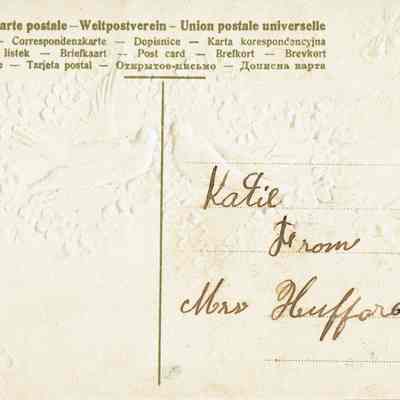 arte postale – Weltpostverein – Union postale universelle
– Correspondenzkarte – Dopisnice – Karta korespondencyjna
listek – Briefkaart – Post card – Brefkort – Brevkort
– Tarjeta postal – Открытое-письмо – Дописна карта
Katie
From
Mrs Huffor